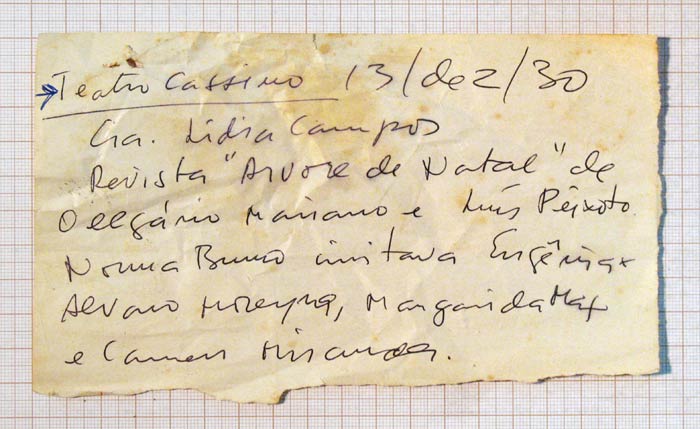 Teatro Cassino 13/dez/30
Cia. Lídia Campos
Revista "Arvore de Natal" de
Olegário Mariano e Luís Peixoto.
Norma Bruno imitava Eugênia
Alvaro Moreyra, Margarida Max
e Carmen Miranda.